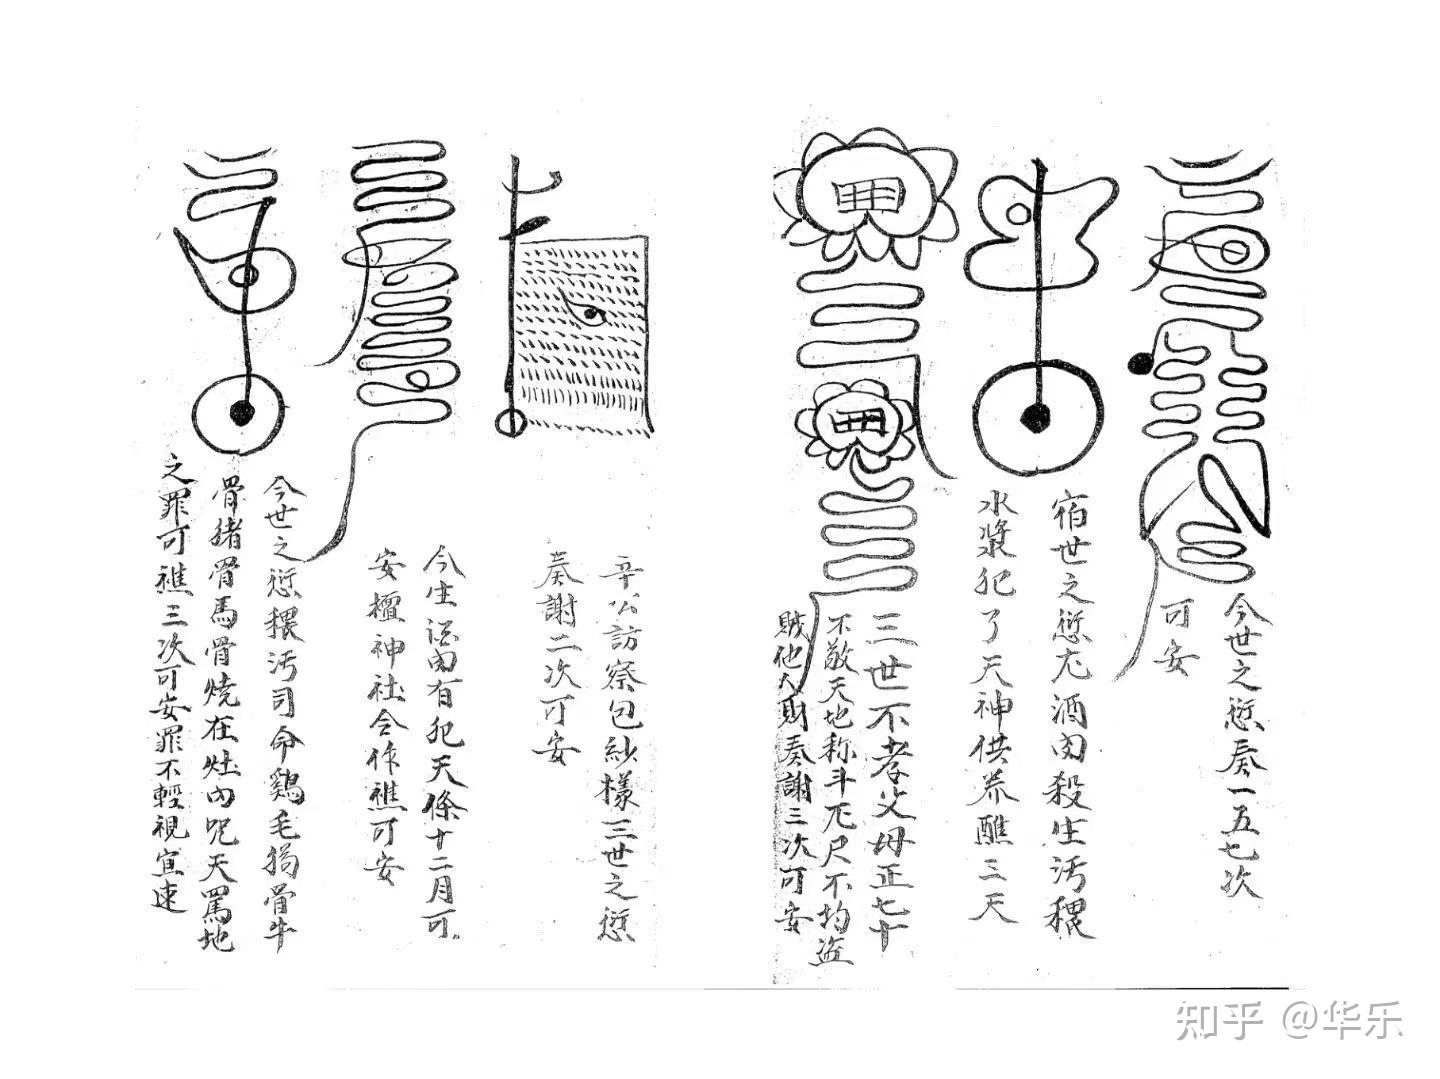 今世之愆奏一五七次
可安
宿世之愆尤酒肉殺生污穢
水漿犯了天神供养醮三天
三世不孝父母正七十
不敬天地称斗厐尺不均盗
賊他人財奏謝三次可安
辛公訪察包紗樣三世之愆
奏謝二次可安
今生酒肉有犯天條十二月可
安檀神社令作礁可安
今世之愆穢污司命鷄毛狗骨牛
骨猪骨馬骨燒在灶内呪天罵地
之罪可礁三次可安罪不輕視宜速
知乎 @华乐